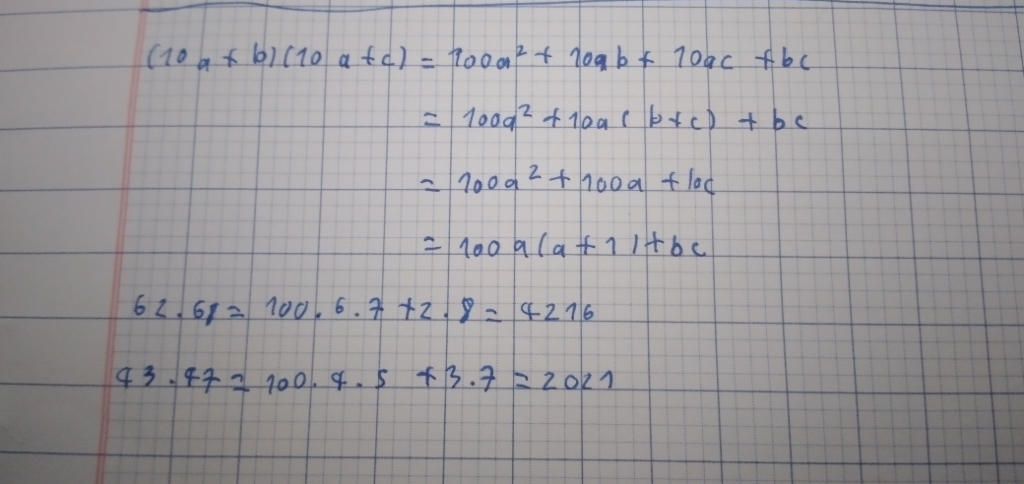 (10a+b)(10a+c) = 100a² + 10ab + 10ac + bc
= 100a² + 10a(b+c) + bc
= 100a² + 100a + bc
= 100a(a+1)+bc
62.68 = 100.6.7 + 2.8 = 4216
43.47 = 100.4.5 + 3.7 = 2021